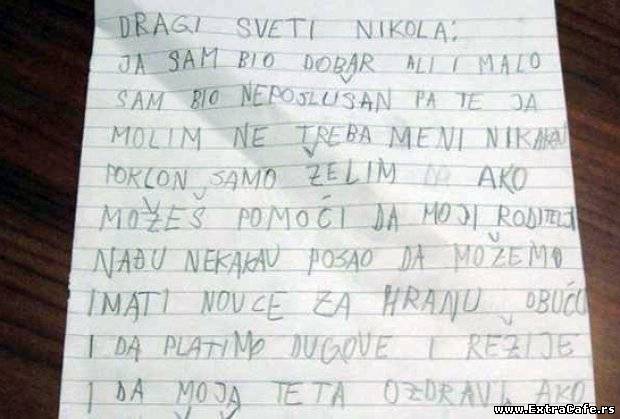 DRAGI SVETI NIKOLA:
JA SAM BIO DOBAR ALI I MALO
SAM BIO NEPOSLUŠAN PA TE JA
MOLIM NE TREBA MENI NIKAKAV
POKLON SAMO ŽELIM DA AKO
MOŽEŠ POMOĆI DA MOJI RODITELJI
NAĐU NEKAKAV POSAO DA MOŽEMO
IMATI NOVCE ZA HRANU, OBUĆU
I DA PLATIMO DUGOVE I REŽIJE
I DA MOJA TETA OZDRAVI, AKO
www.ExtraCafe.rs